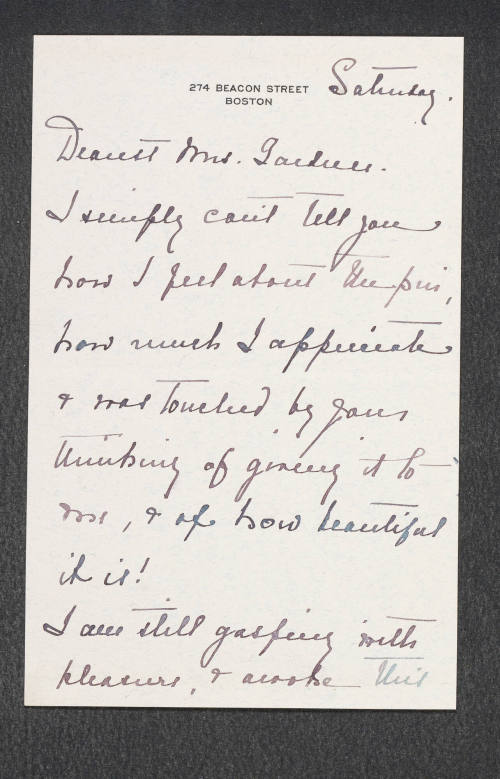 274 BEACON STREET
BOSTON
Saturday.
Dearest Mrs. Gardner.
I simply can't tell you
how I feel about the pin,
how much I appreciate
& was touched by your
thinking of giving it to
me, & of how beautiful
it is!
I am still gasping with
pleasure, & awoke this